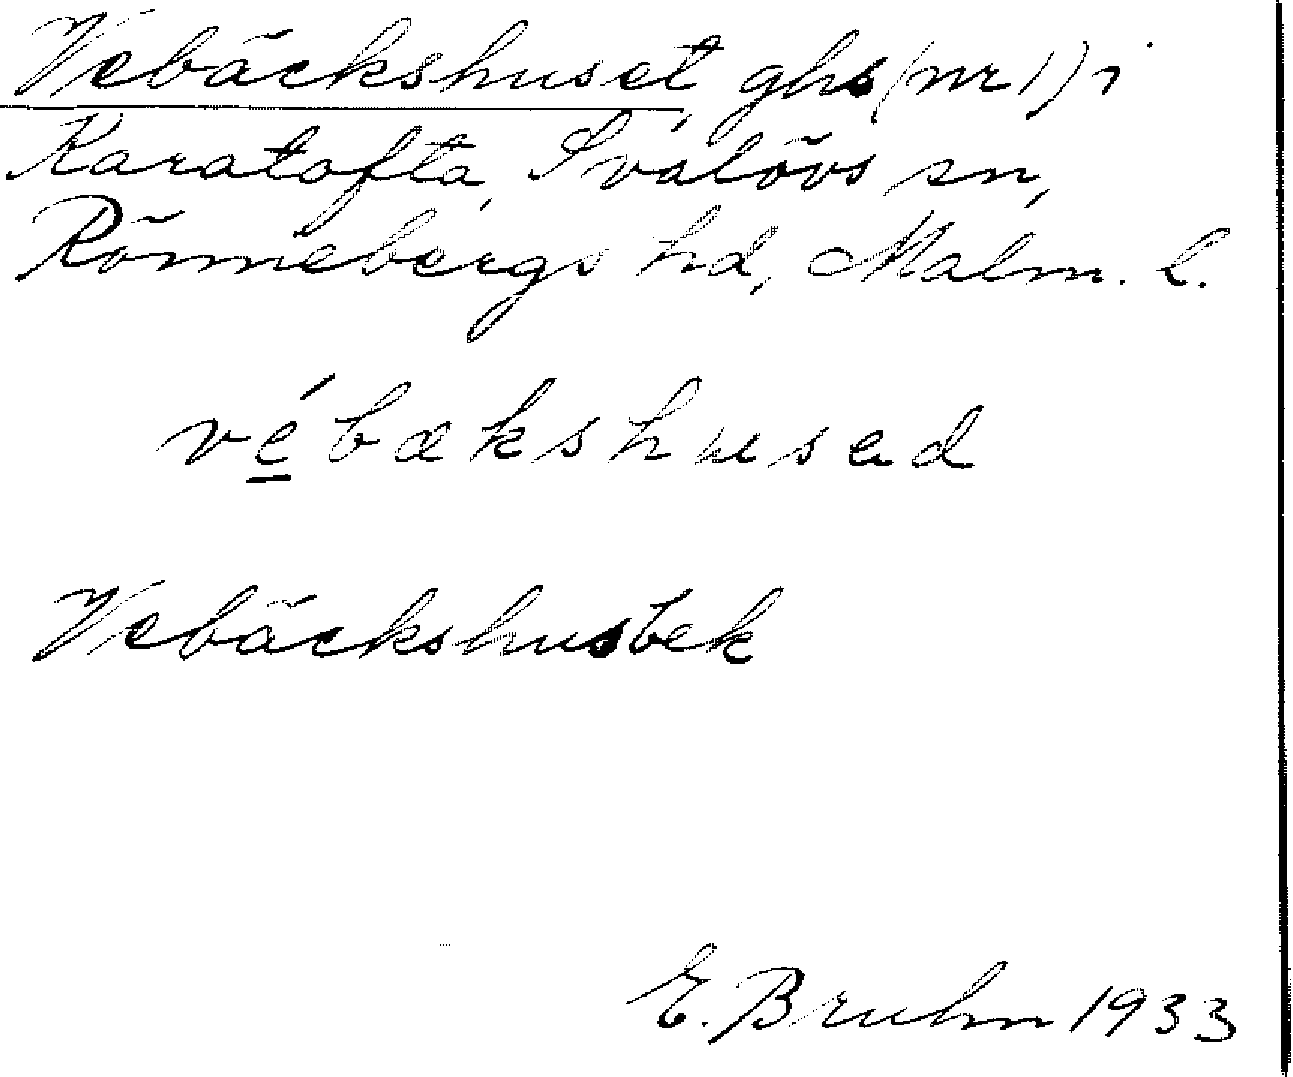 Vebäckshuset, ghs (nr 1) i
Karatofta, Svalövs sn,
Rönnebergs hd, Malm. l.
vé̱bækshusad
Vebäckshusbek
E. Bruhn 1933